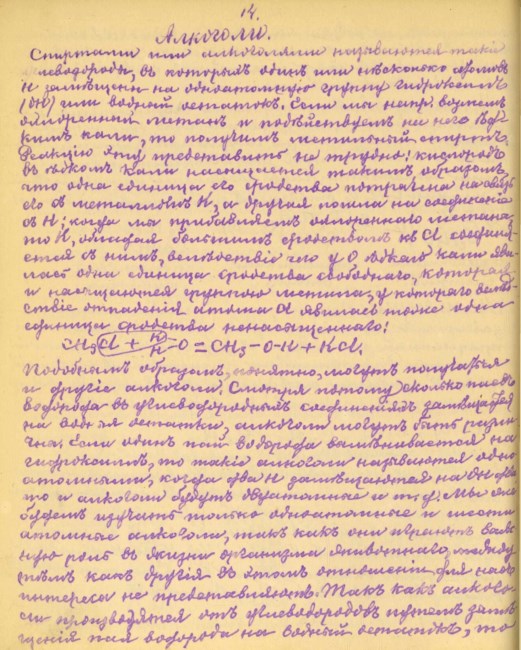 14.
Алкоголи.
Спиртами или алкоголями называются такіе
углеводороды, въ которыхъ одинъ или нѣсколько атомовъ
H замѣщены на одноатомную группу гидроксилъ
(OH) или водный остатокъ. Если мы напр. возьмемъ
охлоренный метанъ и подѣйствуемъ на него ѣд-
кимъ кали, то получимъ метильный спиртъ.
Реакцію эту представить не трудно: кислородъ
въ ѣдкомъ кали насыщается такимъ образомъ,
что одна единица его сродства потрачена на связь
его съ металломъ K, а другая пошла на соединеніе
съ H; когда мы прибавляемъ охлореннаго метана,
то K, обладая большимъ сродствомъ къ Cl соединя-
ется съ нимъ, вслѣдствіе чего у O ѣдкаго кали яви-
лась одна единица сродства свободнаго, которая
и насыщается группою метила, у котораго вслѣд-
ствіе отпаденія атома Cl явилась тоже одна
единица сродства ненасыщеннаго:
CH3Cl + K/H>O = CH3-O-H + KCl.
Подобнымъ образомъ, понятно, могутъ получаться
и другіе алкоголи. Смотря потому, сколько паевъ
водорода въ углеводородныхъ соединеніяхъ замѣщается
на водные остатки, алкоголи могутъ быть разли-
чны. Если одинъ пай водорода вымѣнивается на
гидроксилъ, то такіе алкоголи называются одно-
атомными, когда два H замѣщаются на OH два
то и алкоголи будутъ двуатомные и т.д. Мы
будемъ изучать только одноатомные и шести
атомные алкоголи, такъ какъ они играютъ важ-
ную роль въ жизни организма животнаго, между
тѣмъ какъ другіе въ этомъ отношеніи для насъ
интереса не представляютъ. Такъ какъ алкого-
ли производятся отъ углеводородовъ путемъ замѣ-
щенія пая водорода на водный остатокъ, то